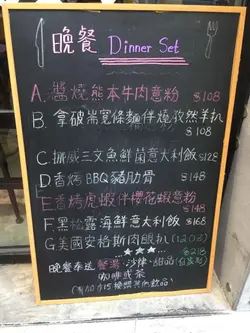 晚餐 Dinner Set
A. 醬燒熊本牛肉意粉 $108
B. 拿破崙寬條麵伴燒孜然羊扒
$108
C 挪威三文魚鮮菌意大利飯 $128
D 香烤BBQ豬肋骨 $148
E 香烤虎蝦伴櫻花蝦意粉
$148
F 黑松露海鮮意大利飯 $168
G 美國安格斯肉眼扒 (12oz)
$218
晚餐奉送 餐湯·沙律·甜品
咖啡或茶
(另加$15換關其他飲品)